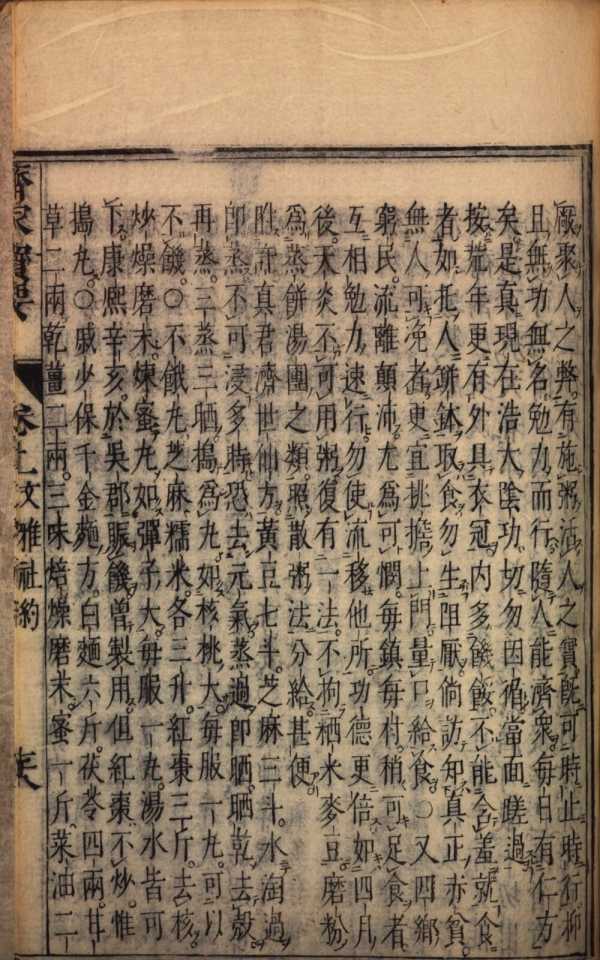 厰聚人之弊有施粥活人之實既可時止時行抑
且無功無名勉力而行隨人能濟衆每日有仁方
矣是真現在浩大陰功切勿因循當面蹉過
按荒年更有外具衣冠内多饑餒不能含羞就食
者如托人缾鉢取食勿生阻厭倘訪知真正赤貧
無人可凂者更宜挑擔上門量口給食〇又四鄉
窮民流離顛沛尤爲可憫每鎮每村稍可足食者
互相勉力速行勿使流移他所功德更倍如四月
後天炎不可用粥復有一法不拘穤米麥豆磨粉
爲蒸餅湯團之類照散粥法分給甚便
昨許真君濟世仙方黄豆七斗芝麻三斗水淘過
即蒸不可浸多時恐去元氣蒸過即晒晒乾去殼
再蒸三蒸三晒搗爲丸如核桃大每服一丸可以
不饑〇不餓丸芝麻糯米各三升紅棗三斤去核
炒燥磨末煉蜜丸如彈子大每服一丸湯水皆可
下康熙辛亥於吳郡賑饑曾製用但紅棗不炒惟
搗丸〇戚少保千金麵方白麵六斤茯苓四兩甘
草二兩乾薑二兩三味焙燥磨末蜜一斤菜油二
卷十二文雅社約